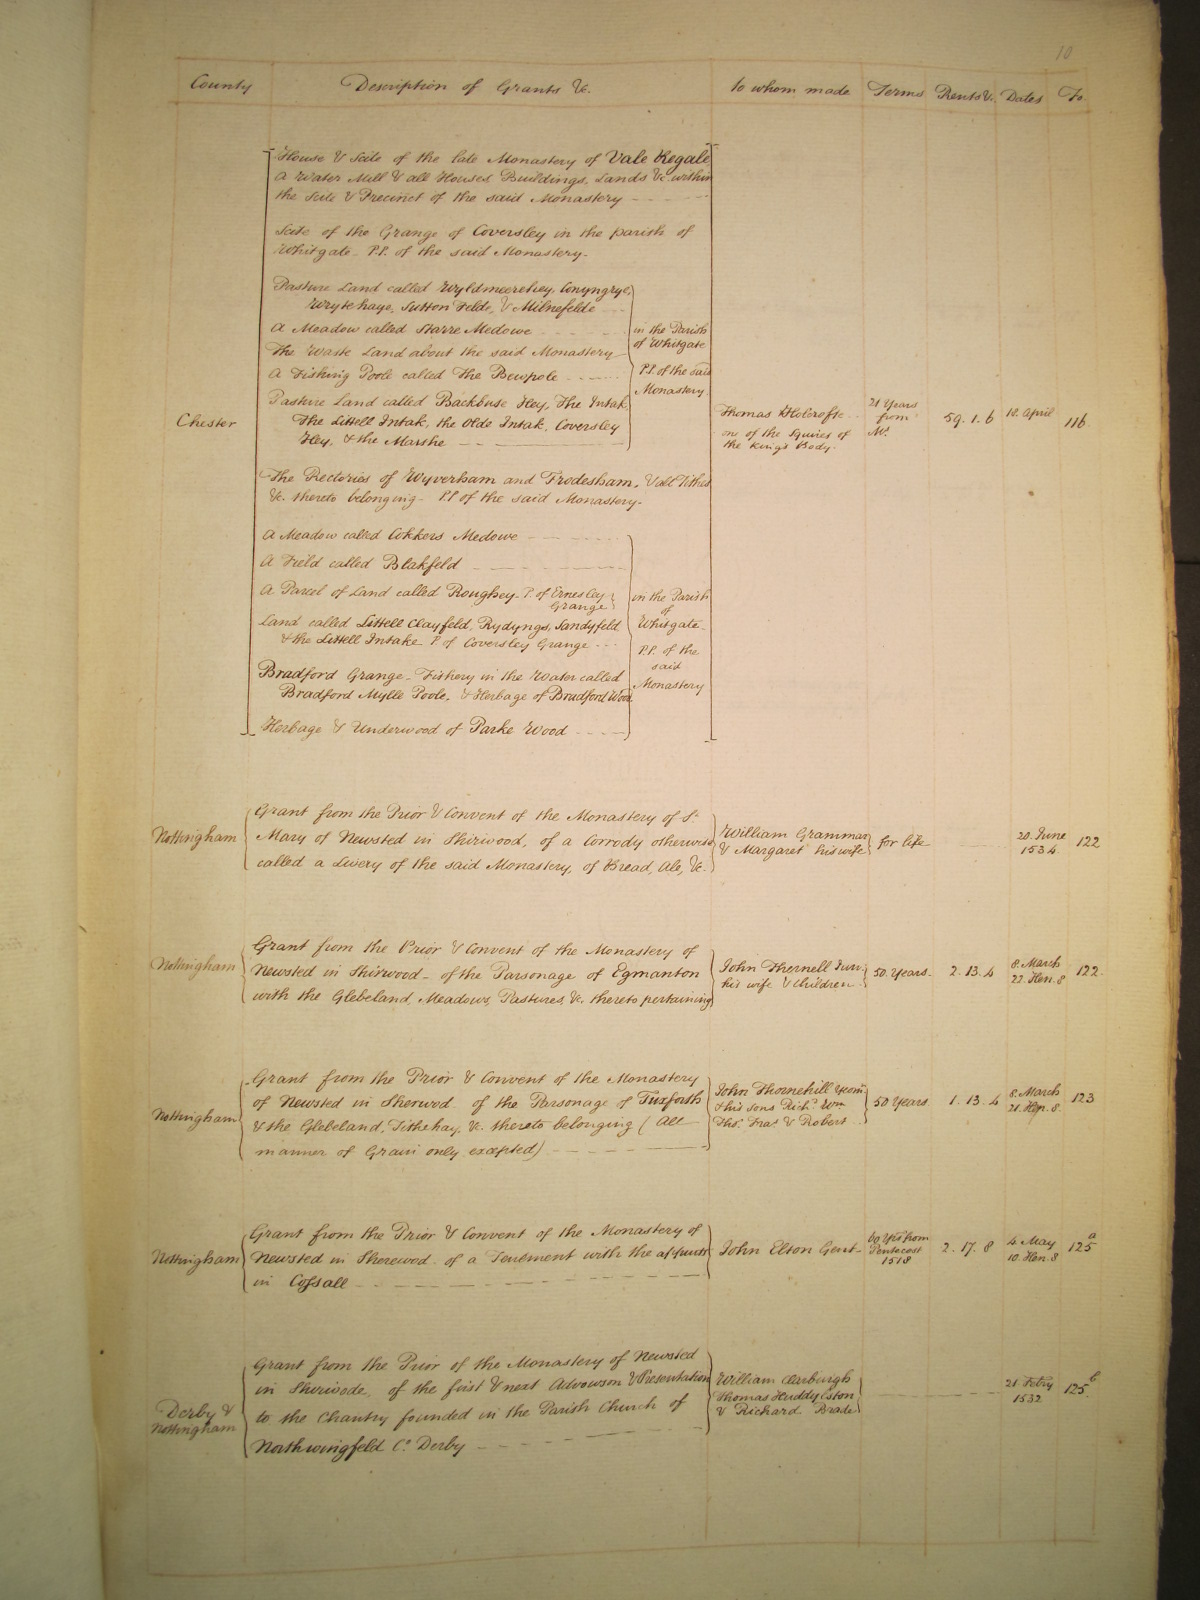 10
County Description of Grants &c. to whom made Terms Rents &c. Dates Fo.
House & Scite of the late Monastery of Vale Regale
a Water Mill & all Houses Buildings, Lands &c. within
the Scite & Precinct of the said Monastery
Scite of the Grange of Coversley in the parish of
Whitgate - P.P. of the said Monastery -
Pasture Land called Wyldmeerehey, Conyngrye,
Wrytehaye, Sutton Felde, & Milnefelde
A Meadow called Starre Medowe
The Waste Land about the said Monastery
A Fishing Poole called The Bewpole
Pasture Land called Backhuse Hey, The Intak,
The Littell Intak, the Olde Intak, Coversley
Hey, & the Marshe
in the Parish
of Whitgate
P.P. of the said
Monastery
The Rectories of Wyverham and Frodesham, & all Tithes
&c. thereto belonging - P.P. of the said Monastery -
A Meadow called Cokkers Medowe
A Field called Blakfeld
A Parcel of Land called Roughey - P. of Ernesley
Grange
Land called Littell Clayfeld, Rydyngs, Sandyfeld
& the Littell Intake P. of Coversley Grange
Bradford Grange - Fishery in the Water called
Bradford Mylle Poole, & Herbage of Bradford Wood
Herbage & Underwood of Parke Wood
in the Parish
of
Whitgate
P.P. of the
said
Monastery
Chester
Thomas Holcrofte
on of the Squires of
the King's Body.
21 Years
from
Ms.
59. 1. 6
18. April
116.
Nottingham
Grant from the Prior & Convent of the Monastery of St.
Mary of Newsted in Shirwood, of a Corrody otherwise
called a Livery of the said Monastery, of Bread, Ale, &c.
William Grammar
& Margaret his wife
for life
20. June
1534
122
Nottingham
Grant from the Prior & Convent of the Monastery of
Newsted in Shirwood - of the Parsonage of Egmanton
with the Glebeland, Meadows, Pastures, &c. thereto pertaining
John Thernell Junr.
his wife & Children
50 Years
2. 13. 4
8. March
22. Hen. 8
122.
Nottingham
Grant from the Prior & Convent of the Monastery
of Newsted in Sherwod of the Parsonage of Tuxforth
& the Glebeland, Tithehay, &c. thereto belonging (All
manner of Grain only excepted)
John Thornehill Yeomn.
& his sons Richd. Wm.
Thos. Fras. & Robert
50 Years
1. 13. 4
8. March
21. Hen. 8.
123
Nottingham
Grant from the Prior & Convent of the Monastery of
Newsted in Sherewod of a Tenement with the appurts
in Cossall
John Elton Gent
60 Yrs from
Pentecost
1518
2. 17. 8
4. May
10. Hen. 8
125 a
Derby &
Nottingham
Grant from the Prior of the Monastery of Newsted
in Shirwode, of the first & next Advowson & Presentation
to the Chantry founded in the Parish Church of
Northwingfeld Co. Derby
William Clarburgh
Thomas Huddyleston
& Richard Brade
21 Febry
1532
125 b